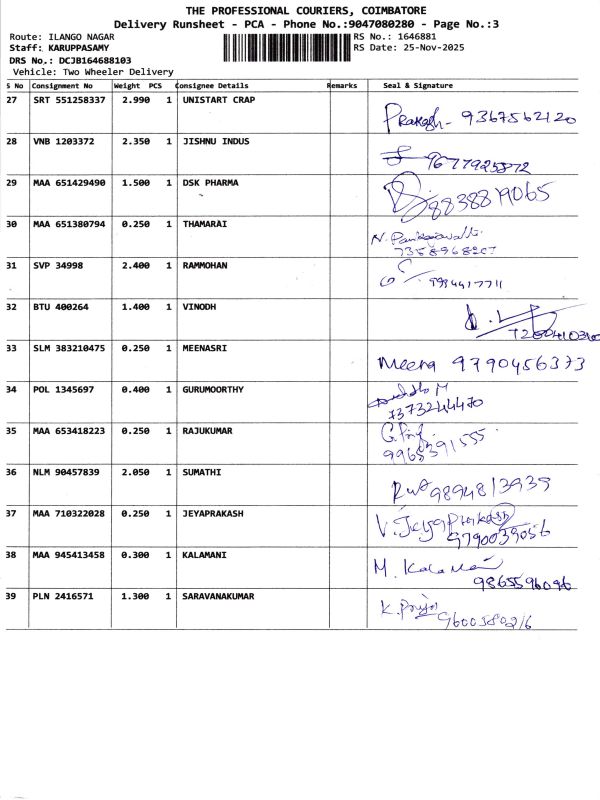 THE PROFESSIONAL COURIERS, COIMBATORE
Delivery Runsheet - PCA - Phone No.:9047080280 - Page No.:3
Route: ILANGO NAGAR RS No.: 1646881
Staff: KARUPPASAMY RS Date: 25-Nov-2025
DRS No.: DCJB164688103
Vehicle: Two Wheeler Delivery
S No Consignment No Weight PCS Consignee Details Remarks Seal & Signature
27 SRT 551258337 2.990 1 UNISTART CRAP Prakash- 9367562120
28 VNB 1203372 2.350 1 JISHNU INDUS
29 MAA 651429490 1.500 1 DSK PHARMA
30 MAA 651380794 0.250 1 THAMARAI N.
7358968207
31 SVP 34998 2.400 1 RAMMOHAN
32 BTU 400264 1.400 1 VINODH
33 SLM 383210475 0.250 1 MEENASRI Meena 9790456373
34 POL 1345697 0.400 1 GURUMOORTHY
7373244470
35 MAA 653418223 0.250 1 RAJUKUMAR
9965391555
36 NLM 90457839 2.050 1 SUMATHI 9894813939
37 MAA 710322028 0.250 1 JEYAPRAKASH V. Jeyaprakash
9790039056
38 MAA 945413458 0.300 1 KALAMANI M. Kalamani
9865596096
39 PLN 2416571 1.300 1 SARAVANAKUMAR K. Priya
9600580216